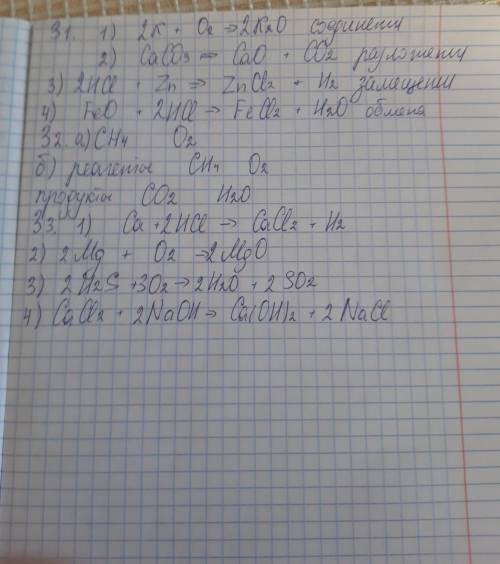 31. 1) 2K + O2 → 2K2O соединения
2) CaCO3 = CaO + CO2 разложения
3) 2HCl + Zn ⇒ ZnCl2 + H2 замещения
4) FeO + 2HCl → FeCl2 + H2O обмена
32. а) CH4 O2
б) реагенты CH4 O2
продукты CO2 H2O
33. 1) Ca + 2HCl → CaCl2 + H2
2) 2Mg + O2 → 2MgO
3) 2H2S + 3O2 → 2H2O + 2SO2
4) CaCl2 + 2NaOH → Ca(OH)2 + 2NaCl